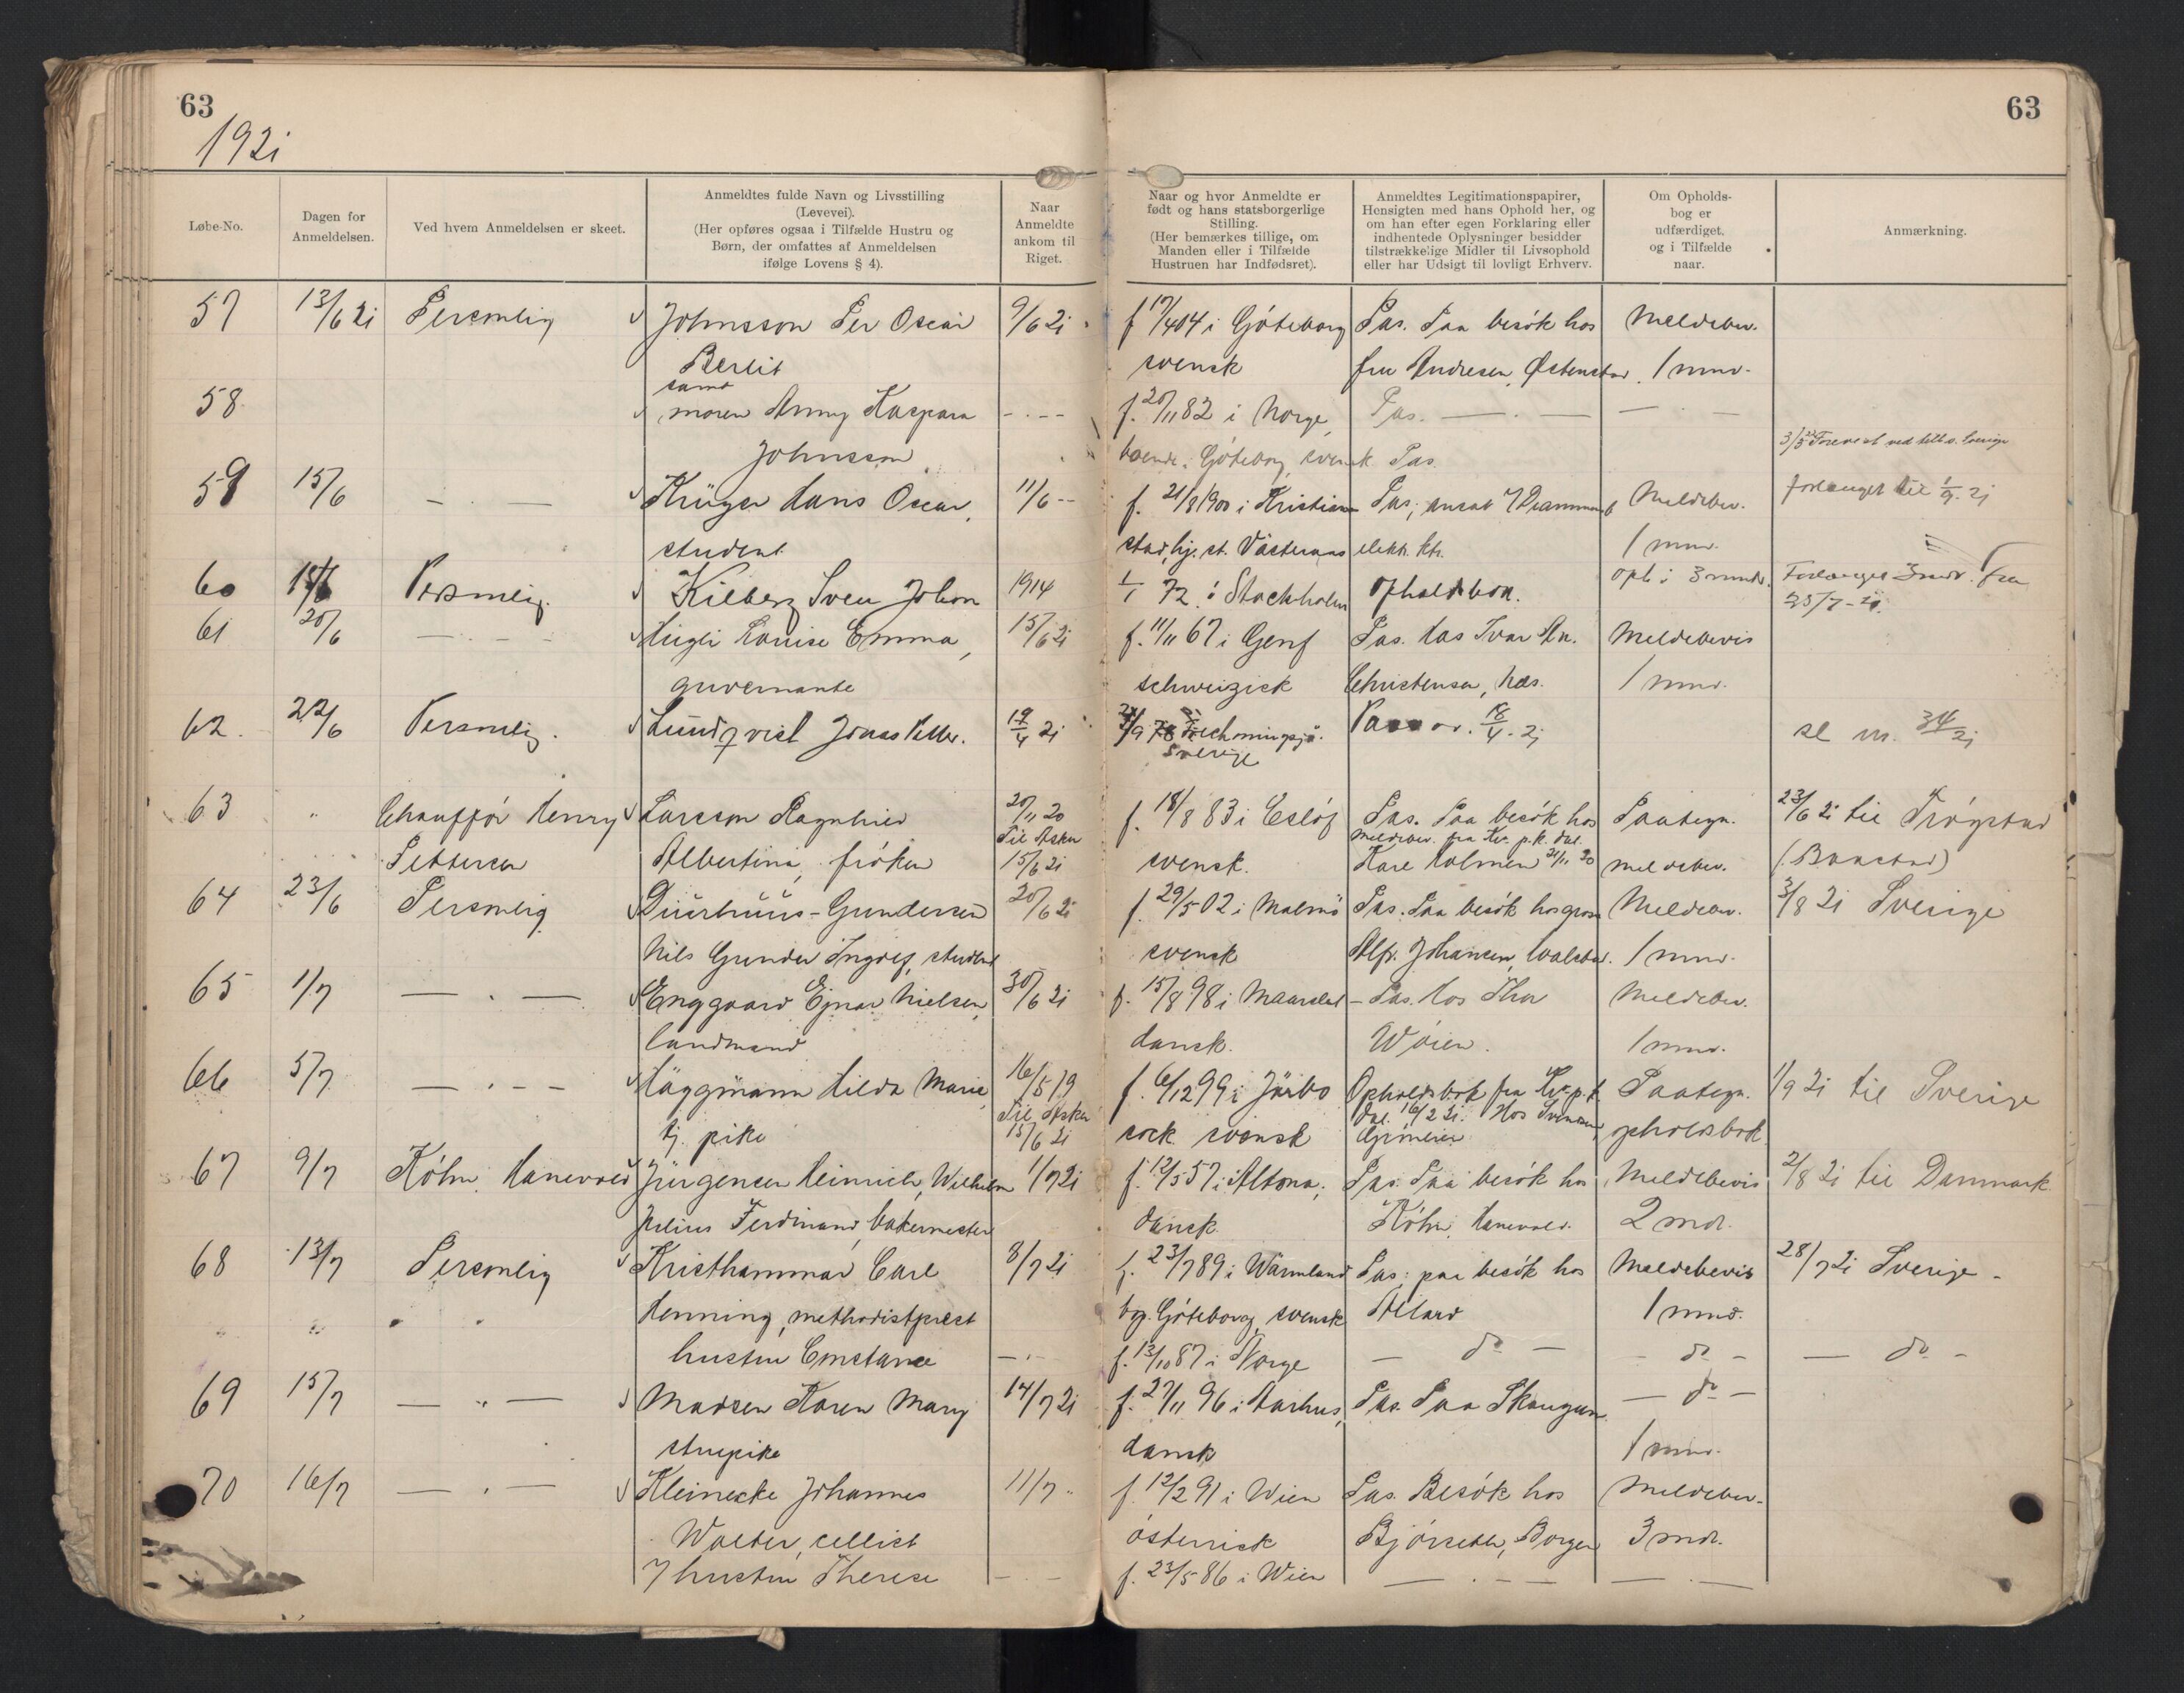 63
63
1921
Løbe-No.
Dagen for Anmeldelsen.
Ved hvem Anmeldelsen er skeet.
Anmeldtes fulde Navn og Livsstilling
(Levevei).
(Her opføres ogsaa i Tilfælde Hustru og
Børn, der omfattes af Anmeldelsen
ifølge Lovens § 4).
Naar
Anmeldte
ankom til
Riget.
Naar og hvor Anmeldte er
født og hans statsborgerlige
Stilling.
(Her bemærkes tillige, om
Manden eller i Tilfælde
Hustruen har Indfødsret).
Anmeldtes Legitimationspapirer,
Hensigten med hans Ophold her, og
om han efter egen Forklaring eller
indhentede Oplysninger besidder
tilstrækkelige Midler til Livsophold
eller har Udsigt til lovligt Erhverv.
Om Opholds-
bog er
udfærdiget,
og i Tilfælde
naar.
Anmærkning.
57 13/6 21 Personlig Johnsson Per Oscar 9/6 21 f 17/4 04 i Göteborg Pas. Paa besök hos Meldebev.
Berlit svensk fru Andresen, Østenstad. 1 mnd.
samt
58 moren Anny Kaspara f. 20/11 82 i Norge, Pas.
Johnsson boende i Göteborg, svensk Pas.
59 15/6 Krüger Hans Oscar, 11/6 f. 21/8 1900 i Kristian Pas; ansat Meldebev. forlænget til 1/9. 21
student stad, hj. st. Västeraas elektr. 1 mnd.
60 Personlig. Kilberg Sven Johan 1914 1/1 72 i Stockholm opholdsbok. oph i 3 mndr. Forlænget 3 mdr. fra
25/7-21.
61 20/6 Hügli Louise Emma, 15/6 21 f. 11/11 67 i Genf Pas. Hos Ivar An. Meldebevis
guvernante schweizisk Christensen, Næs. 1 mnd.
62. 22/6 Personlig. Lundqvist Jonas 19/4 21 Sverige 18/4. 21
63 Chaufför Henry Larsson Ragnhild 20/11 20 f. 18/8 83 i Eslöf Pas. Paa besök hos Paategn. 23/6 21 til Trögstad
Til Asker meldebev. fra Kr. p.k. dat.
Pettersen Albertina, fröken 15/6 21 svensk. Karl Holmen 21/11 20 meldebev. (Baastad)
64 23/6 Personlig Düürhuus-Gundersen 20/6 21 f. 29/5 02 i Malmö Pas. Paa besök hos gross Meldebev. 3/8 21 Sverige
Nils Gunder Ingolf, student svensk Alfr. Johansen, Hvalstad. 1 mnd.
65 1/7 Enggaard Ejnar Nielsen, 30/6 21 f. 15/8 98 i Maarslet Pas. Hos Thor Meldebev.
landmand dansk. Wöien. 1 mnd.
66 5/7 Häggmann Hilda Marie, 16/5 19 f. 6/12 99 i Järbo Opholdsbok fra Kr. p.k. Paategn. 1/9 21 til Sverige
Til Asker dat. 16/2 21. Hos Svensen,
tj. pike 15/6 21 sock. svensk opholdsbok
67 9/7 Köhn, Hanevold Jürgensen Heinrich, Wilhelm 1/7 21 f. 12/5 57 i Altona, Pas. Paa besök hos Meldebevis 2/8 21 til Danmark
Julius Ferdinand, bakermester dansk Köhn, Hanevold. 2 mdr.
68 13/7 Personlig Kristhammar Carl 8/7 21 f. 23/7 89 i Wärmland Pas; paa besök hos Meldebevis 28/7 21 Sverige
Henning, methodistprest bg. Göteborg, svensk 1 mnd.
hustru Constance f. 13/10 87 i Norge do do do
69 15/7 Madsen Karen Mary 14/7 21 f. 27/11 96 i Aarhus, Pas. Paa Skaugum. do
stuepike dansk 1 mnd.
70 16/7 Kleinecke Johannes 11/7 f. 12/2 91 i Wien Pas. Besök hos Meldebev.
Walter, cellist österrisk Björseth, Borgen 3 mdr.
hustru Therese f. 23/5 86 i Wien